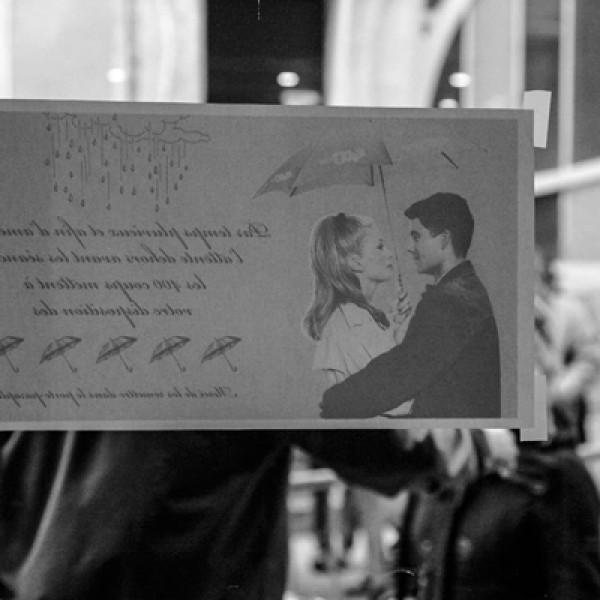 Par temps pluvieux et afin d'
l'attente dehors avant les
les 400 coups mettent à
votre disposition des
Merci de les remettre dans le porte